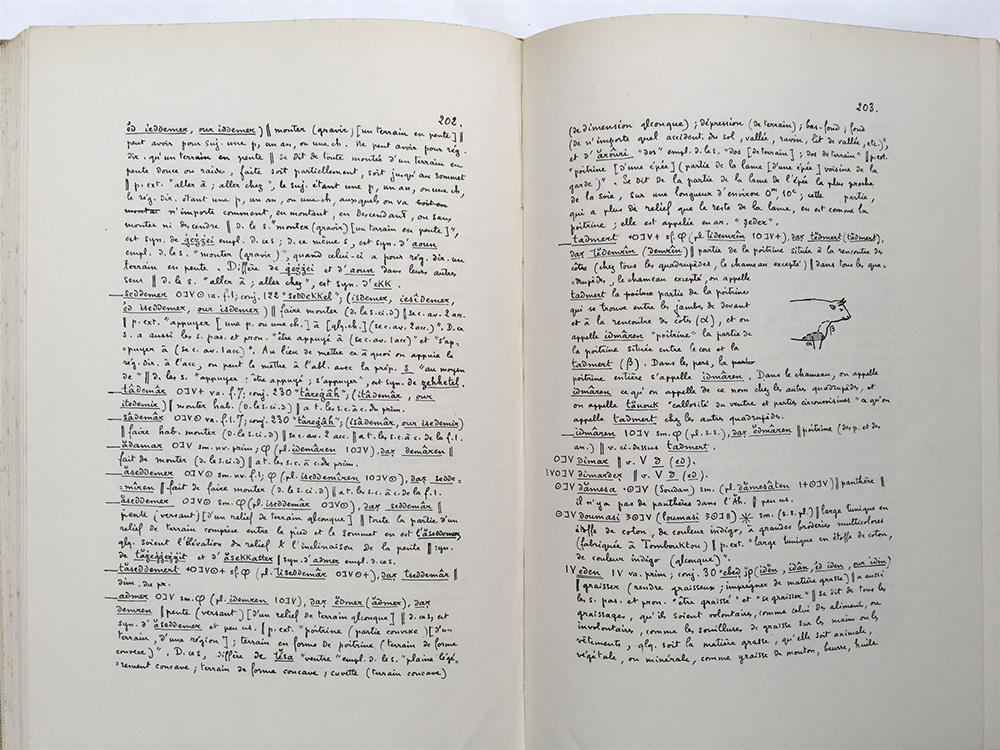 202.
ĕd ieddemer, our iddemer) ‖ monter (gravir) [un terrain en pente] ‖
peut avoir pour suj. une p, un an, ou une ch. Ne peut avoir pour rég.
dir. qu'un terrain en pente ‖ se dit de toute montée d'un terrain en
pente douce ou raide, faite soit partiellement, soit jusqu'au sommet
‖ p. ext. "aller à ; aller chez", le suj. étant une p, un an, ou une ch,
le rég. dir. étant une p, un an, ou une ch, auxquels on va soit en
montant n'importe comment, en montant, en descendant, ou sans
monter ni descendre ‖ d. le s. "monter (gravir) [un terrain en pente]",
est syn. de ġeẓẓei empl. d. ce s ; d. ce même s, est syn. d'aoun
empl. d. le s. "monter (gravir)", quand celui-ci a pour rég. dir. un
terrain en pente. Diffère de ġeẓẓei et d'aoun dans leurs autres
sens ‖ d. le s. "aller à ; aller chez", est syn. d'eKK.
seddemer ⵔⵎⴷⵙ va. f. 1 ; conj. 122 "seddeKKel" ; (isdemer, iesîdemer,
ĕd iseddemer, our isdemer) ‖ faire monter (d. le s. ci. d) ‖ se c. av. 2 acc.
‖ p. ext. "appuyer [une p. ou une ch.] à [qlq. ch.] (se c. av. 2 acc.)". D. ce
s. a aussi les s. pas. et pron. "être appuyé à (se c. av. 1 acc)" et "s'ap-
=puyer à (se c. av. 1 acc)". Au lieu de mettre ce à quoi on appuie le
rég. dir. à l'acc, on peut le mettre à l'abl. avec la prép. s "au moyen
de" ‖ d. les s. "appuyer ; être appuyé ; s'appuyer", est syn. de zehhetel.
tâdemâr ⵔⵎⴷⵜ va. f. 7 ; conj. 230 "târeġâh" ; (itâdemâr, our
itedemir) ‖ monter hab. (d. le s. ci. d) ‖ a t. les s. c. à c. du prim.
sâdemâr ⵔⵎⴷⵙ va. f. 1. 7 ; conj. 230 "târeġâh" ; (isâdemâr, our isedemir)
‖ faire hab. monter (d. le s. ci. d) ‖ se c. av. 2 acc. ‖ a t. les s. c. à c. de la f. 1.
ădamar ⵔⵎⴷ sm. nv. prim ; φ (pl. idemâren ⵏⵔⵎⴷ), daɣ demâren ‖
fait de monter (d. le s. ci. d) ‖ a t. les s. c. à c. du prim.
ăseddemer ⵔⵎⴷⵙ sm. nv. f. 1 ; φ (pl. iseddemîren ⵏⵔⵎⴷⵙ), daɣ sedde-
=mîren ‖ fait de faire monter (d. le s. ci. d) ‖ a t. les s. c. à c. de la f. 1.
ăseddemer ⵔⵎⴷⵙ sm. φ (pl. iseddemâr ⵔⵎⴷⵙ), daɣ seddemâr ‖
pente (versant) [d'un relief de terrain qlconque] ‖ toute la partie d'un
relief de terrain comprise entre le pied et le sommet en est l'ăseddemer
qlq. soient l'élévation du relief & l'inclinaison de la pente ‖ syn.
et d'ăseKKatter ‖ syn. d'admer empl. d. ce s.
tăseddemert ⵜⵔⵎⴷⵙⵜ sf. φ (pl. tiseddemâr ⵔⵎⴷⵙⵜ), daɣ tseddemâr ‖
dim. du pr.
admer ⵔⵎⴷ sm. φ (pl. idemren ⵏⵔⵎⴷ), daɣ ĕdmer (ădmer), daɣ
demren ‖ pente (versant) [d'un relief de terrain qlconque] ‖ d. ce s, est
syn. d'ăseddemer et peu us. ‖ p. ext. "poitrine (partie convexe) [d'un
terrain, d'une région] ; terrain en forme de poitrine (terrain de forme
convexe)". D. ce s, diffère de tĕsa "ventre" empl. d. le s. "plaine légè-
=rement concave ; terrain de forme concave ; cuvette (terrain concave)
203.
(de dimension qlconque) ; dépression (de terrain) ; bas-fond ; fond
(de n'importe quel accident du sol, vallée, ravin, lit de vallée, etc.)",
et d'ărôuri "dos" empl. d. le s. "dos [de terrain] ; dos de terrain" ‖ p. ext.
"poitrine [d'une épée] (partie de la lame [d'une épée] voisine de la
garde)". Se dit de la partie de la lame de l'épée la plus proche
de la soie, sur une longueur d'environ 0ᵐ,10ᶜ ; cette partie,
qui a plus de relief que le reste de la lame, en est comme la
poitrine ; elle est appelée en ar. "ṣeder".
tadmert ⵜⵔⵎⴷⵜ sf. φ (pl. tidemrîn ⵏⵔⵎⴷⵜ), daɣ tĕdmert (tădmert),
daɣ tĕdemrîn (demrîn) ‖ partie de la poitrine située à la rencontre des
côtes (chez tous les quadrupèdes, le chameau excepté) ‖ dans tous les qua-
=drupèdes, le chameau excepté, on appelle
tadmert la partie de la poitrine
qui se trouve entre les jambes de devant
et à la rencontre des côtes (α), et on
appelle idmâren "poitrine" la partie de
la poitrine située entre le cou et la
tadmert (β). Dans les pers, la
poitrine entière s'appelle idmâren. Dans le chameau, on appelle
idmâren ce qu'on appelle de ce nom chez les autres quadrupèdes, et
on appelle tăsnouk "callosité du ventre et parties circonvoisines" ce qu'on
appelle tadmert chez les autres quadrupèdes.
β
α
idmâren ⵏⵔⵎⴷ sm. φ (pl. s. s.), daɣ ĕdmâren ‖ poitrine (des p. et des
an.) ‖ v. ci. dessus tadmert.
ⵔⵎⴷ dimar ‖ v. ⴷ D (ed).
dimardeɣ ‖ v. ⴷ D (ed).
ⵙⵎⴷ dămesa ⵙⵎⴷ (Soudan) sm. (pl. dămesâten ⵏⵜⵙⵎⴷ) ‖ panthère ‖
il n'y a pas de panthères dans l'Ăh. ‖ peu us.
ⵙⵎⴷ doumasi ⵙⵎⴷ (loumasi ⵙⵎⵍ) sm. (s. s. pl.) ‖ large tunique en
étoffe de coton, de couleur indigo, à grandes broderies multicolores
(fabriquée à TombouKtou) ‖ p. ext. "large tunique en étoffe de coton,
de couleur indigo (qlconque)".
ⵏⴷ eden ⵏⴷ va. prim ; conj. 30 "eheḍ" ; φ (idĕn, idân, ĕd iden, our idin)
‖ graisser (rendre graisseux ; imprégner de matière grasse) ‖ a aussi
les s. pas. et pron. "être graissé" et "se graisser" ‖ se dit de tous les
graissages, qu'ils soient volontaires, comme celui des aliments, ou
involontaires, comme les souillures de graisse sur les mains ou les
vêtements, qlq. soit la matière grasse, qu'elle soit animale,
végétale, ou minérale, comme graisse de mouton, beurre, huile